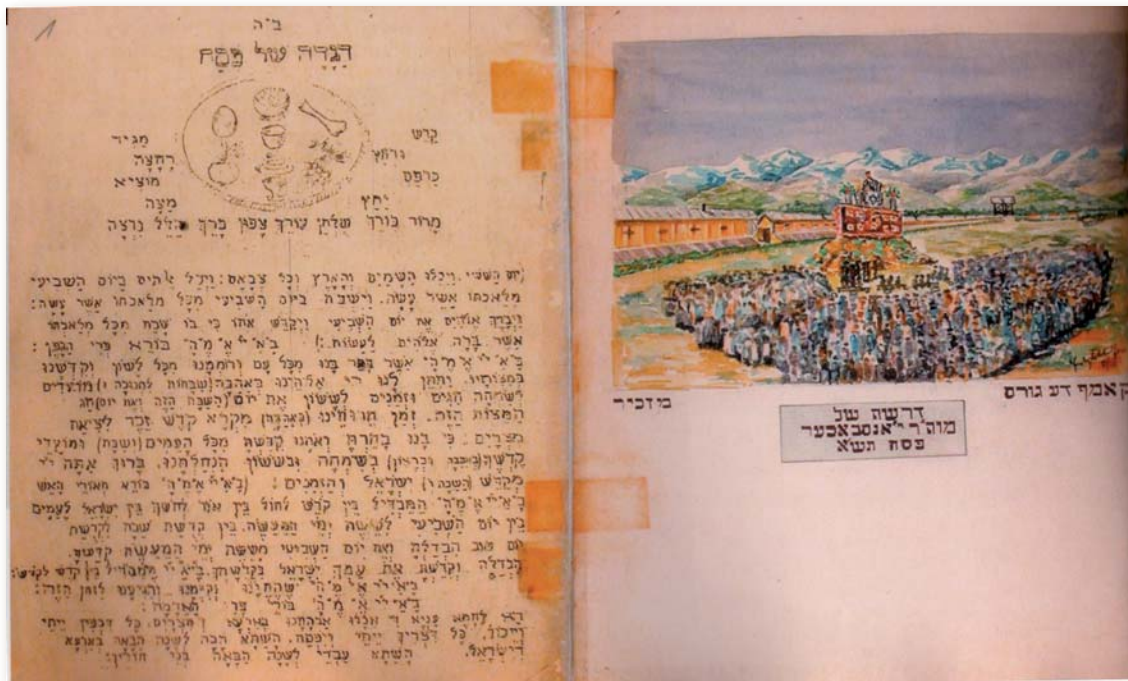 1
ב״ה
הגדה של פסח
קדש
ורחץ
כרפס
יחץ
מגיד
רחצה
מוציא
מצה
מרור כורך שלחן עורך צפון ברך הלל נרצה
(יום הששי. ויכלו השמים והארץ וכל צבאם: ויכל אלהים ביום השביעי
מלאכתו אשר עשה. וישבת ביום השביעי מכל מלאכתו אשר עשה:
ויברך אלהים את יום השביעי ויקדש אתו כי בו שבת מכל מלאכתו
אשר ברא אלהים לעשות:) בא״יי א״מ״ה׳ בורא פרי הגפן:
בא״יי א״מ״ה׳ אשר בחר בנו מכל עם ורוממנו מכל לשון וקדשנו
במצותיו. ותתן לנו יי אלהינו באהבה (שבתות למנוחה ו) מועדים
לשמחה חגים וזמנים לששון את יום (השבת הזה ואת יום) חג
המצות הזה. זמן חרותינו (באהבה) מקרא קדש זכר ליציאת
מצרים: כי בנו בחרת ואתנו קדשת מכל העמים (ושבת) ומועדי
קדשך (באהבה וברצון) בשמחה ובששון הנחלתנו. ברוך אתה יי
מקדש (השבת ו) ישראל והזמנים: (בא״יי א״מ״ה׳ בורא מאורי האש
בא״יי א״מ״ה׳ המבדיל בין קדש לחול בין אור לחשך בין ישראל לעמים
בין יום השביעי לששת ימי המעשה. בין קדושת שבת לקדושת
יום טוב הבדלת ואת יום השביעי מששת ימי המעשה קדשת.
הבדלת וקדשת את עמך ישראל בקדשתך. בא״יי המבדיל בין קדש לקדש:
בא״יי א״מ״ה׳ שהחינו וקימנו והגיענו לזמן הזה:
בא״יי א״מ״ה׳ בורי פרי האדמה:
הא לחמא עניא די אכלו אבהתנו בארעא דמצרים. כל דכפין ייתי
וייכול. כל דצריך ייתי ויפסח. השתא הכא לשנה הבאה בארעא
דישראל. השתא עבדי לשנה הבאה בני חורין:
קאמף דע גורס מזכיר
דרשה של
מוה״ר י״אנסבאכער
פסח תש״א